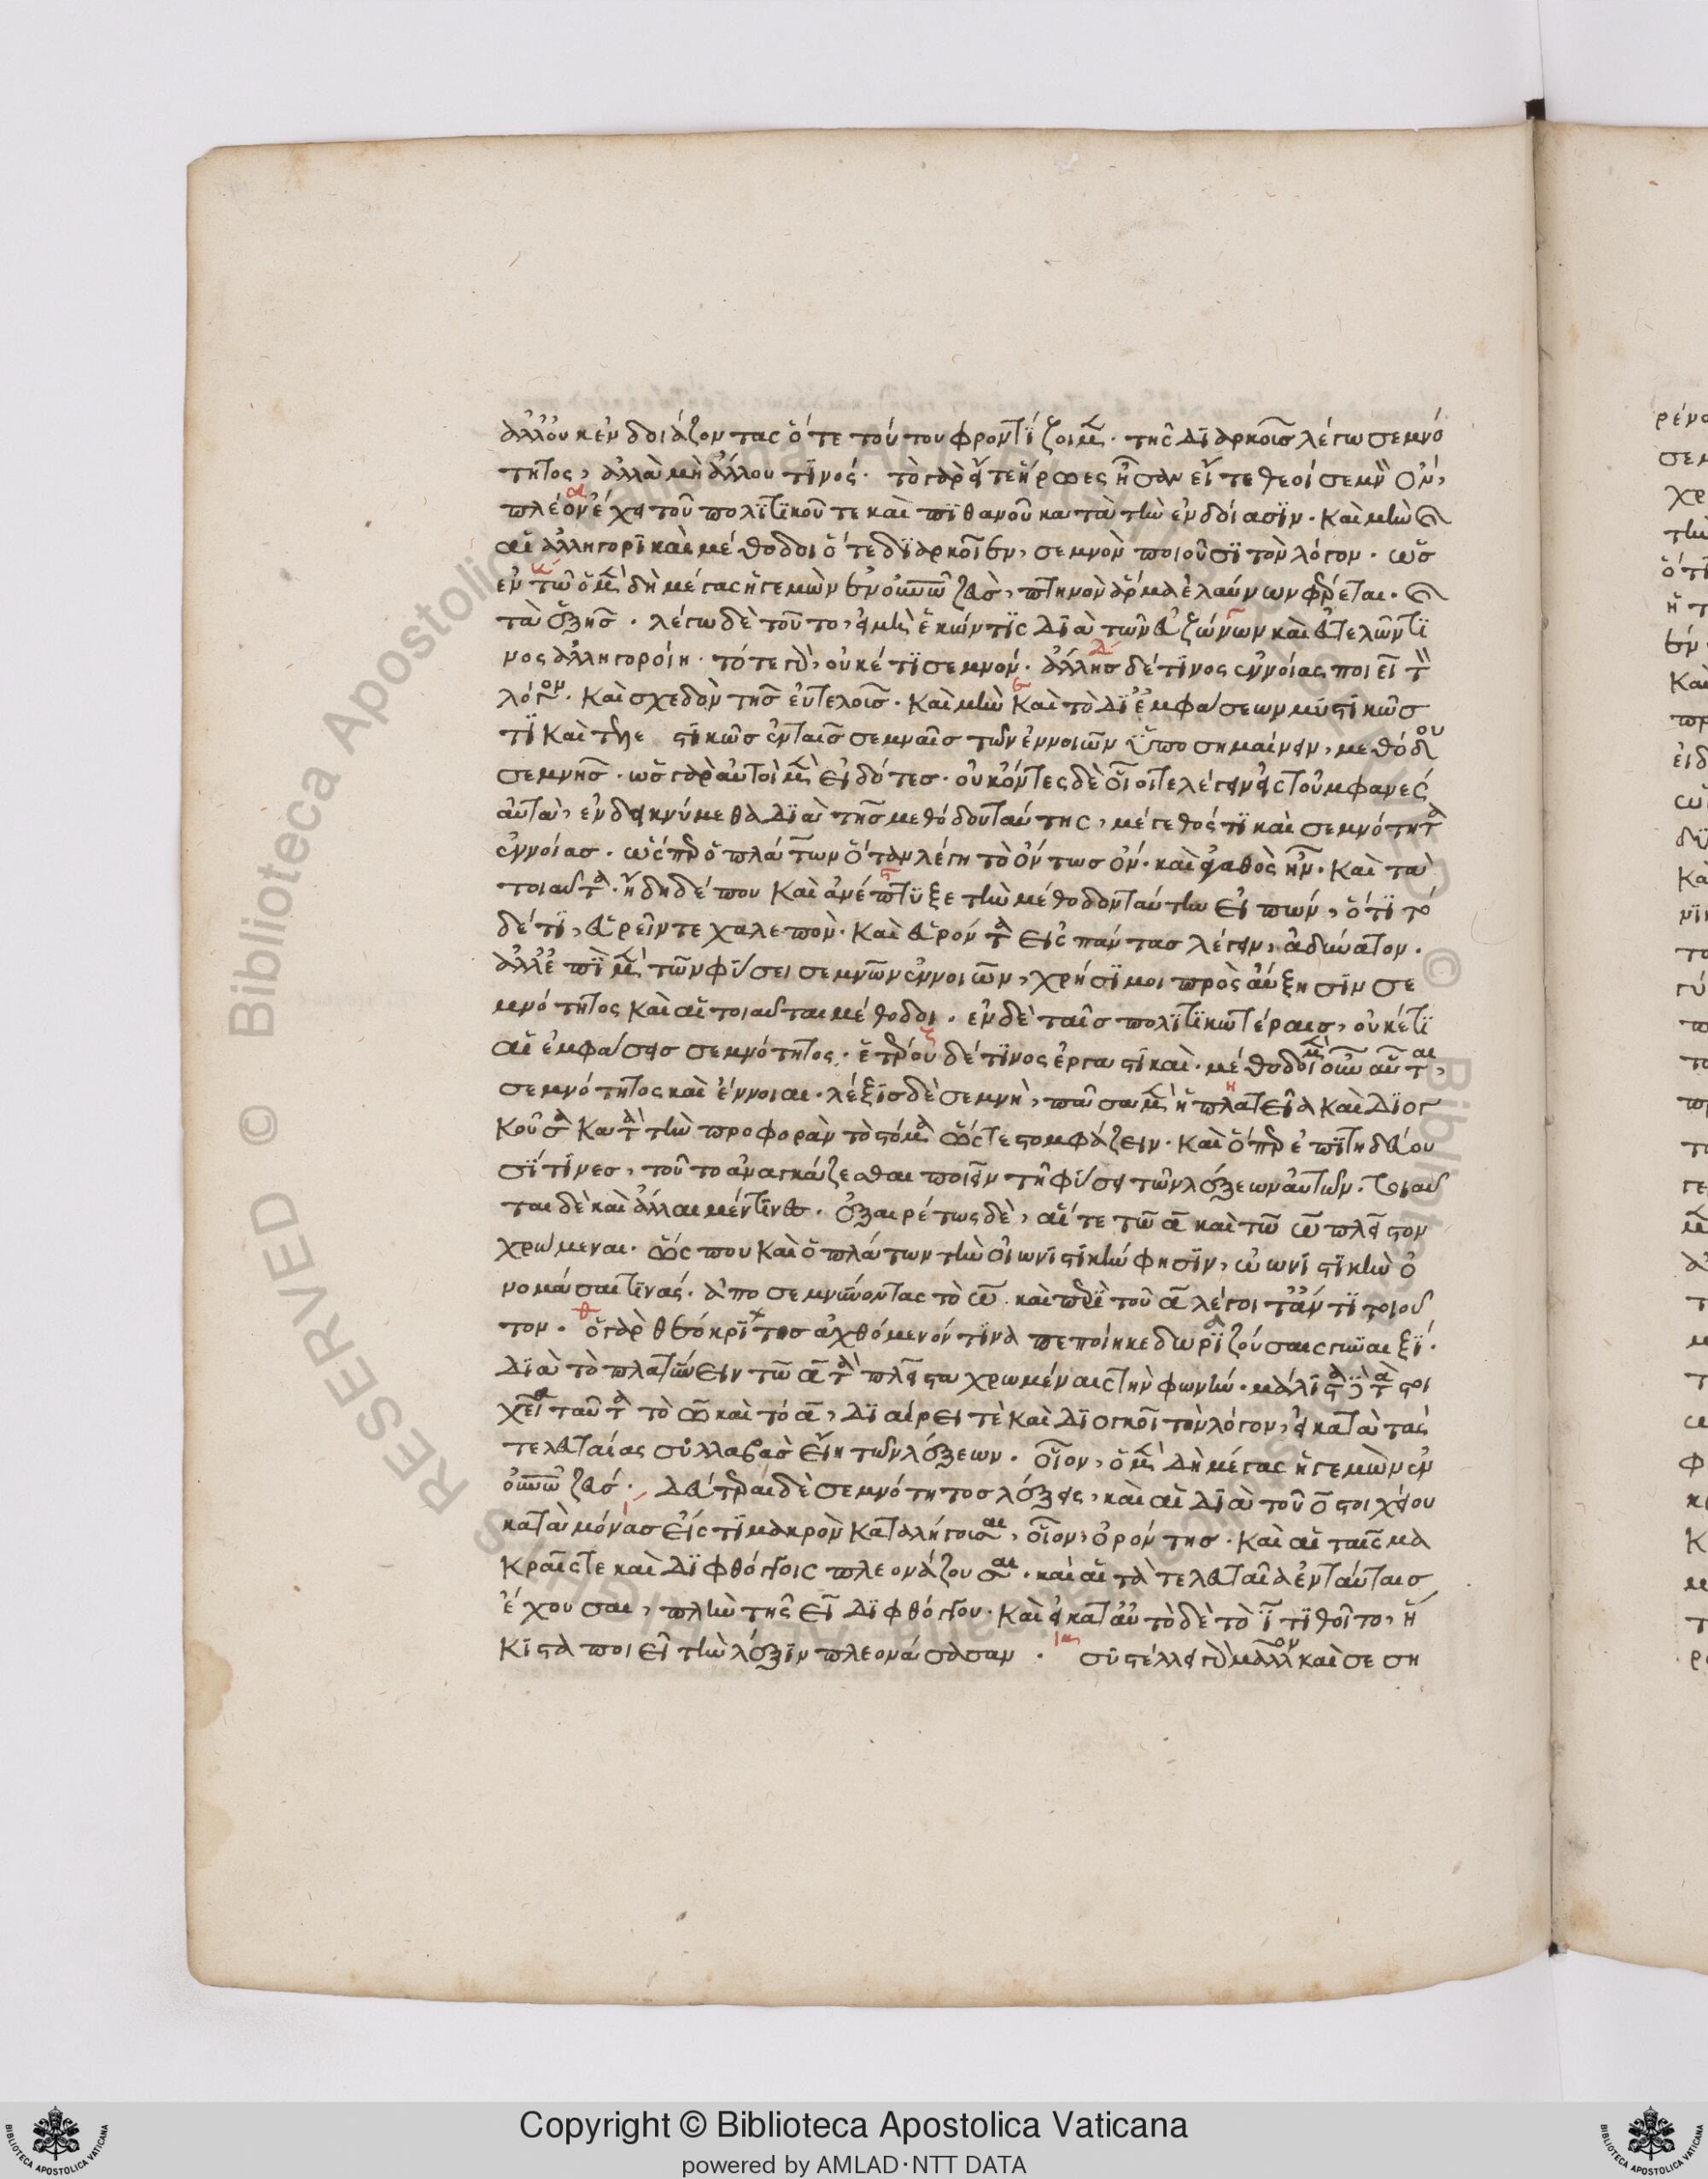 ἀλλ' οὐκ ἐνδοιάζοντας ὅτε τούτου φροντίζοιμεν. τῆς διαρκοῦς λέγω σεμνό
τητος, ἀλλὰ μὴ ἄλλου τινός. τὸ γὰρ εἴτε ἥρωες ἦσαν εἴτε θεοί σεμνὸν ὄν,
πλέον ἔχει τοῦ πολιτικοῦ τε καὶ πιθανοῦ κατὰ τὴν ἐνδοίασιν. καὶ μὴν
αἱ ἀλληγορικαὶ μέθοδοι ὅτε διαρκοῖεν, σεμνὸν ποιοῦσι τὸν λόγον. ὡς
ἐν τῶ ὁ μὲν δὴ μέγας ἡγεμὼν ἐν οὐνω ζεὺς, πτηνὸν ἅρμα ἐλαύνων φέρεται.
τὰ ἑξῆς. λέγω δὲ τοῦτο, εἰ μὴ ἑκών τις διὰ τῶν εὐζώνων καὶ εὐτελῶν τι
νος ἀλληγοροίη. τότε γὰρ, οὐκέτι σεμνόν. ἄλλης δέ τινος ἐννοίας ποιεῖ τὸν
λόγον. καὶ σχεδὸν τῆς εὐτελοῦς. καὶ μὴν καὶ τὸ δι' ἐμφάσεων μυστικῶς
τι καὶ τελε στικῶς ἐν ταῖς σεμναῖς τῶν ἐννοιῶν ὑποσημαίνειν, μεθόδου
σεμνῆς. ὡς γὰρ αὐτοὶ μὲν εἰδότες. οὐκ ὄντες δὲ οἷοί τε λέγειν εἰς τοὐμφανὲς
αὐτὰ, ἐνδεικνύμεθα διὰ τῆς μεθόδου ταύτης, μέγεθός τι καὶ σεμνότητα
ἐννοίας. ὥσπερ ὁ πλάτων ὅταν λέγη τὸ ὄντως ὄν. καὶ ἀγαθὸς ἦν. καὶ τὰ
τοιαῦτα. ἤδη δέ που καὶ ἀνέπτυξε τὴν μέθοδον ταύτην εἰπών, ὅτι τό
δέ τι, εὑρεῖν τε χαλεπὸν. καὶ εὑρόντα εἰς πάντας λέγειν, ἀδύνατον.
ἀλλ' ἐπὶ μὲν τῶν φύσει σεμνῶν ἐννοιῶν, χρήσιμοι πρὸς αὔξησιν σε
μνότητος καὶ αἱ τοιαῦται μέθοδοι. ἐν δὲ ταῖς πολιτικωτέραις, οὐκέτι
αἱ ἐμφάσεις σεμνότητος. ἑτέρου δέ τινος ἐργαστικαὶ. μέθοδοι μὲν οὖν αὗται,
σεμνότητος καὶ ἔννοιαι. λέξις δὲ σεμνὴ, πᾶσα μὲν ἡ πλατεῖα καὶ διογ
κοῦσα κατὰ τὴν προφορὰν τὸ στόμα ὥστε στομφάζειν. καὶ ὅπερ ἐπιτηδεύου
σί τινες, τοῦτο ἀναγκάζεσθαι ποιεῖν τῆ φύσει τῶν λέξεων αὐτῶν. τοιαῦ
ται δὲ καὶ ἄλλαι μέν τινες. ἐξαιρέτως δὲ, αἵ τε τῶ α καὶ τῶ ω πλεῖστον
χρώμεναι. ὥς που καὶ ὁ πλάτων τὴν οἰωνιστικήν φησιν, οἰωνιστικὴν ὀ
νομάσαι τινάς. ἀποσεμνύνοντας τὸ ω. καὶ περὶ τοῦ α λέγοι τἂν τι τοιοῦ
τον. ὁ γὰρ θεόκριτος ἀχθόμενόν τινα πεποίηκε δωριζούσαις γυναιξί.
διὰ τὸ πλατύνειν τῶ α τὰ πλεῖστα χρωμέναις τὴν φωνήν. μάλιστα δὲ τὰ στοι
χεῖα ταῦτα τὸ ω καὶ τό α, διαίρει τὲ καὶ διογκοῖ τὸν λόγον, εἰ κατὰ τὰς
τελευταίας συλλαβὰς εἴη τῶν λέξεων. οἷον, ὁ μὲν δὴ μέγας ἡγεμὼν ἐν
οὐνω ζεύς. δεύτεραι δὲ σεμνότητος λέξεις, καὶ αἱ διὰ τοῦ ο στοιχείου
κατὰ μόνας εἴς τι μακρὸν καταλήγουσαι, οἷον, ὀρόντης. καὶ αἱ ταῖς μα
κραῖς τε καὶ διφθόγγοις πλεονάζουσαι. καὶ αἱ τὰ τελευταῖα ἐν ταύταις
ἔχουσαι, πλὴν τῆς ει διφθόγγου. καὶ εἰ κατ' αὐτὸ δὲ τὸ ι τιθοῖτο, ἥ
κιστα ποιεῖ τὴν λέξιν πλεονάσασαν. συστέλλει γὰρ μᾶλλον καὶ σεση